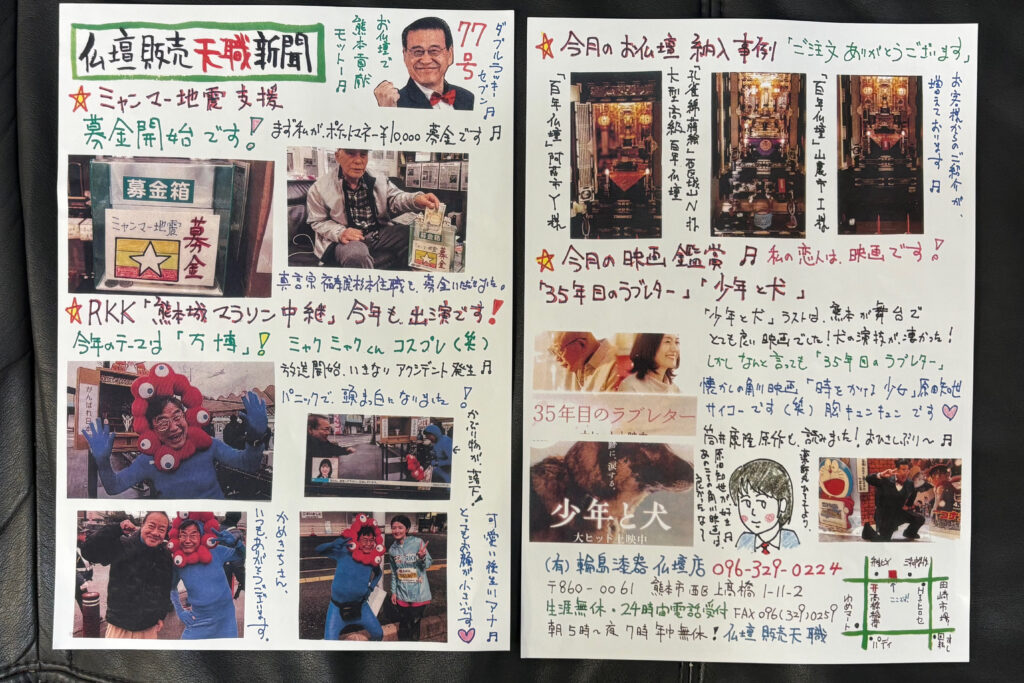 仏壇販売天職新聞
お仏壇で
熊本貢献
モットー♬
77号
ダブルラッキーセブン♬
☆ミャンマー地震支援
募金開始です! まず私が、ポケットマネー¥10,000募金です♬
募金箱
ミャンマー地震
募金
募金箱
☆RKK「熊本城マラソン中継」今年も、出演です!
今年のテーマは「万博」! ミャクミャクくんコスプレ(笑)
放送開始、いきなりアクシデント発生♬
パニックで、頭まっ白になりました!
かぶり物が、落下!
がんばれ
かめきちさん、
いつもありがとうございます。
可愛い後生川アナ♬
とってもお顔が、小さいです♡
☆今月のお仏壇納入事例「ご注文ありがとうございます」
「百年仏壇」阿蘇市Y様
大型高級百年仏壇
「百年仏壇」山鹿市I様
お客様からのご紹介が、
増えております♬
☆今月の映画鑑賞♬ 私の恋人は、映画です!
「35年目のラブレター」「少年と犬」
「少年と犬」ラストは、熊本が舞台で
とても良い映画でした!犬の演技が、凄かった!
しかしなんと言っても「35年目のラブレター」
懐かしの角川映画「時をかける少女」原田知世
サイコーです(笑)胸キュンキュンです♡
筒井康隆原作も、読みました!おひさしぶり〜♬
35年目のラブレター
少年と犬
大ヒット上映中
(有)輪島漆器仏壇店 096-329-0224
〒860-0061 熊本市西区上高橋1-11-2
生涯無休・24時間電話受付 FAX096(329)0259
朝5時〜夜7時年中無休!仏壇販売天職
田崎市場
高橋稲荷
ゆめマート